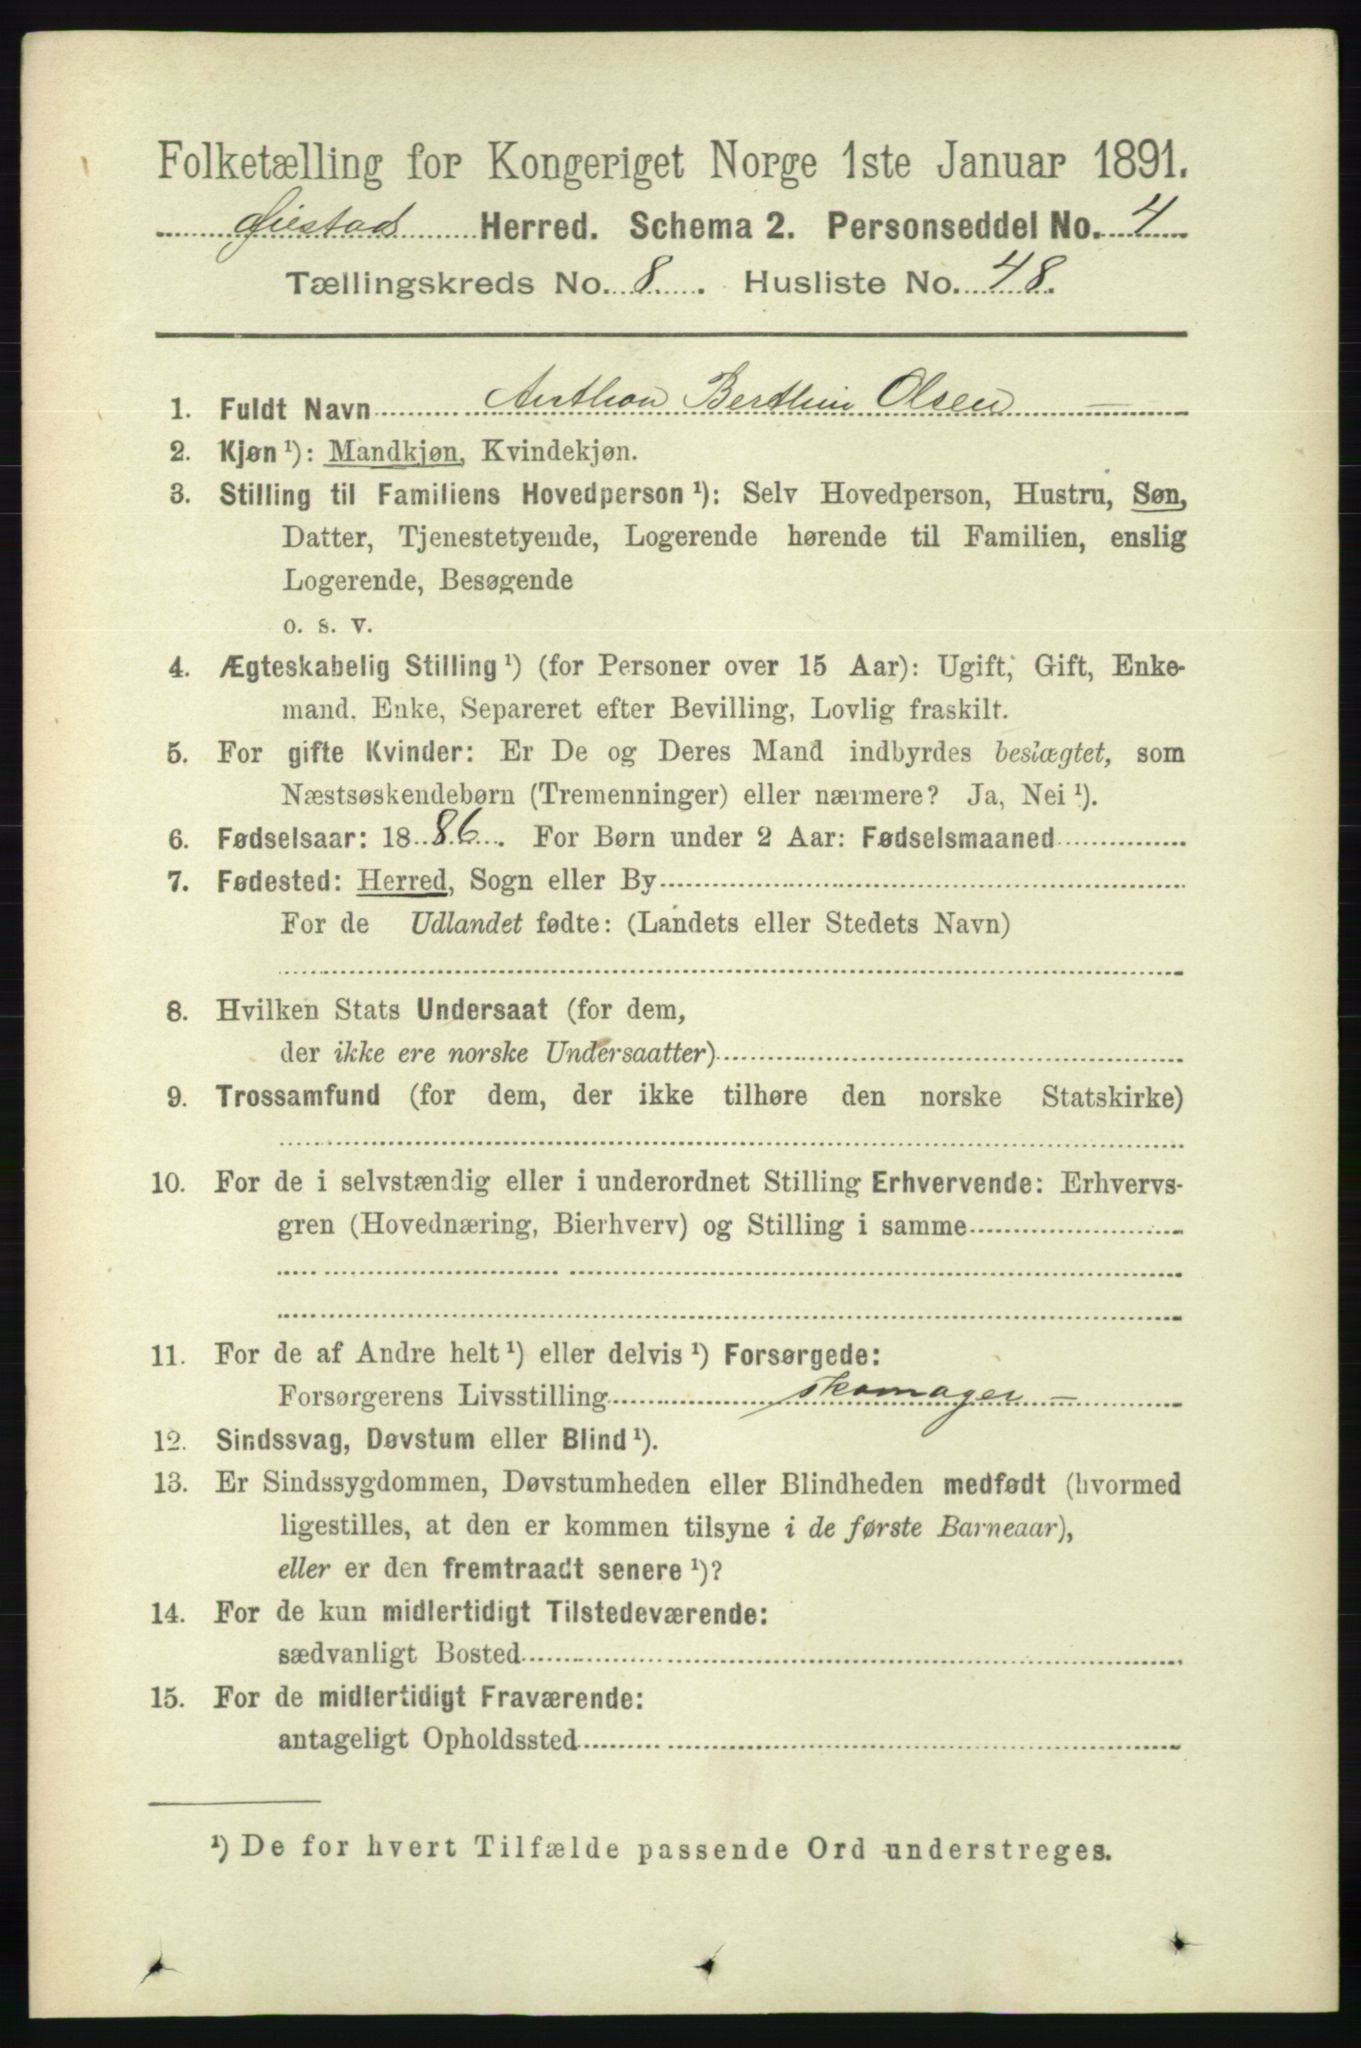 Folketælling for Kongeriget Norge 1ste Januar 1891.
Øiestad Herred. Schema 2. Personseddel No. 4
Tællingskreds No. 8. Husliste No. 48.
1. Fuldt Navn Anthon Berthin Olsen
2. Kjøn ¹): Mandkjøn, Kvindekjøn.
3. Stilling til Familiens Hovedperson ¹): Selv Hovedperson, Hustru, Søn,
Datter, Tjenestetyende, Logerende hørende til Familien, enslig
Logerende, Besøgende
o. s. v.
4. Ægteskabelig Stilling ¹) (for Personer over 15 Aar): Ugift, Gift, Enke-
mand, Enke, Separeret efter Bevilling, Lovlig fraskilt.
5. For gifte Kvinder: Er De og Deres Mand indbyrdes beslægtet, som
Næstsøskendebørn (Tremenninger) eller nærmere? Ja, Nei ¹).
6. Fødselsaar: 1886. For Børn under 2 Aar: Fødselsmaaned
7. Fødested: Herred, Sogn eller By
For de Udlandet fødte: (Landets eller Stedets Navn)
8. Hvilken Stats Undersaat (for dem,
der ikke ere norske Undersaatter)
9. Trossamfund (for dem, der ikke tilhøre den norske Statskirke)
10. For de i selvstændig eller i underordnet Stilling Erhvervende: Erhvervs-
gren (Hovednæring, Bierhverv) og Stilling i samme
11. For de af Andre helt ¹) eller delvis ¹) Forsørgede:
Forsørgerens Livsstilling skomager
12. Sindssvag, Døvstum eller Blind ¹).
13. Er Sindssygdommen, Døvstumheden eller Blindheden medfødt (hvormed
ligestilles, at den er kommen tilsyne i de første Barneaar),
eller er den fremtraadt senere ¹)?
14. For de kun midlertidigt Tilstedeværende:
sædvanligt Bosted
15. For de midlertidigt Fraværende:
antageligt Opholdssted
¹) De for hvert Tilfælde passende Ord understreges.